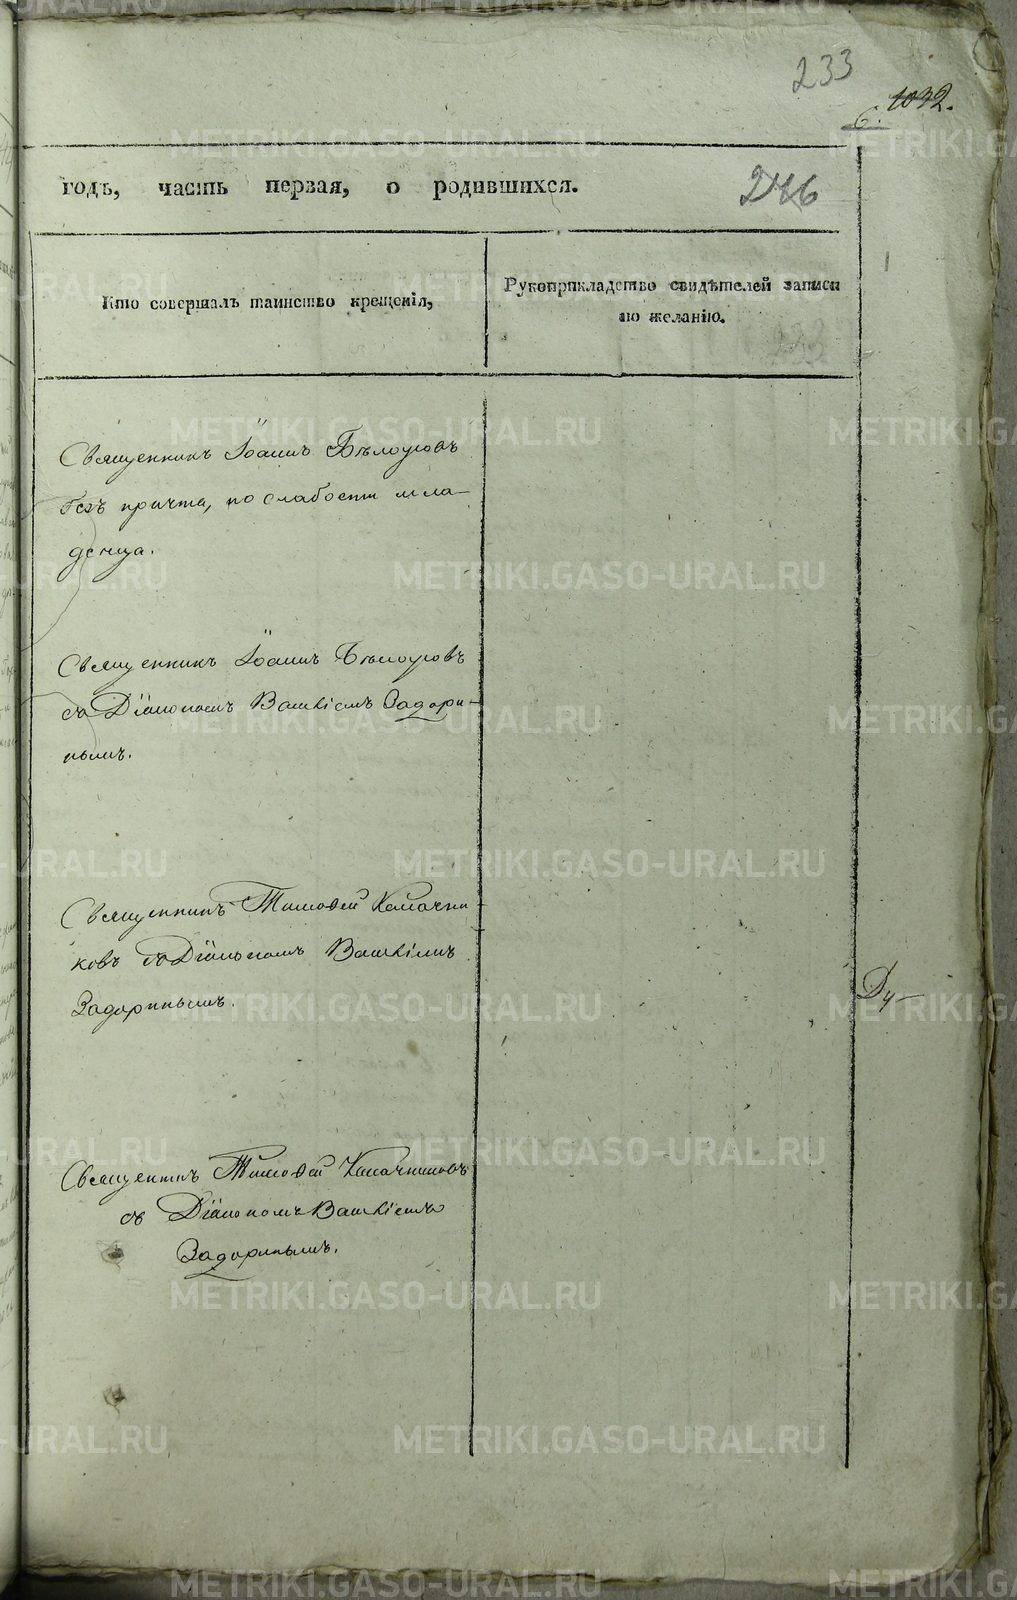 233
6. 1032.
годъ, часть первая, о родившихся.
246
Кто совершалъ таинство крещенія,
Рукоприкладство свидѣтелей записи
по желанію.
Священникъ Іоаннъ Бѣлоусовъ
безъ причта, по слабости мла-
денца.
Священникъ Іоаннъ Бѣлоусовъ
съ Діакономъ Задори-
нымъ.
Священникъ Тимоѳей Калачни-
ковъ съ Діакономъ
Задоринымъ.
Священникъ Тимоѳей Калачниковъ
съ Діакономъ
Задоринымъ.
Ду-
METRIKI.GASO-URAL.RU